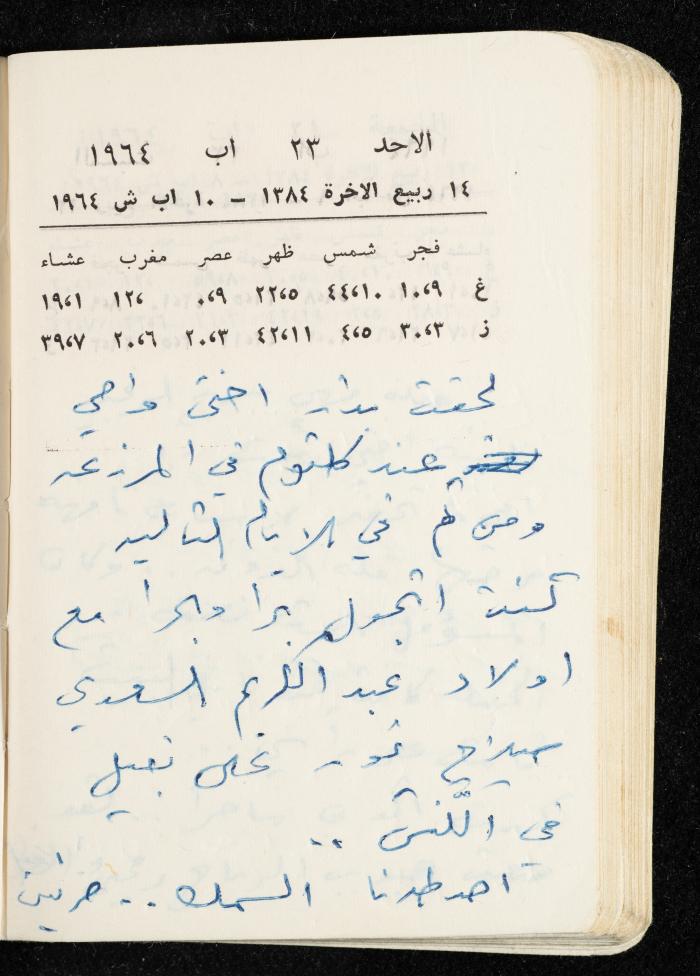 الاحد ٢٣ اب ١٩٦٤
١٤ ربيع الاخرة ١٣٨٤ – ١٠ اب ش ١٩٦٤
فجر شمس ظهر عصر مغرب عشاء
غ ١٠،٩ ٤٤،١٠ ٢٢،٥ ٠،٩ ١٢، ١٩،١
ز ٣٠،٣ ٤،٥ ٤٢،١١ ٢٠،٣ ٢٠،٦ ٣٩،٧
لحقت بدار اختي وامي
عند كلثوم في المزرعه
ومن ثم في الايام التاليه
كنت اتجول برا وبحرا مع
اولاد عبد الكريم السعدي
صلاح نبيل
في اللنش ..
اصطدنا السمك .. مرتين